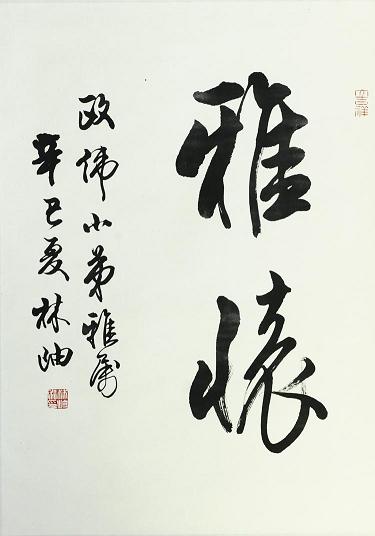 雅懷
政偉小弟雅属
辛巳夏林岫